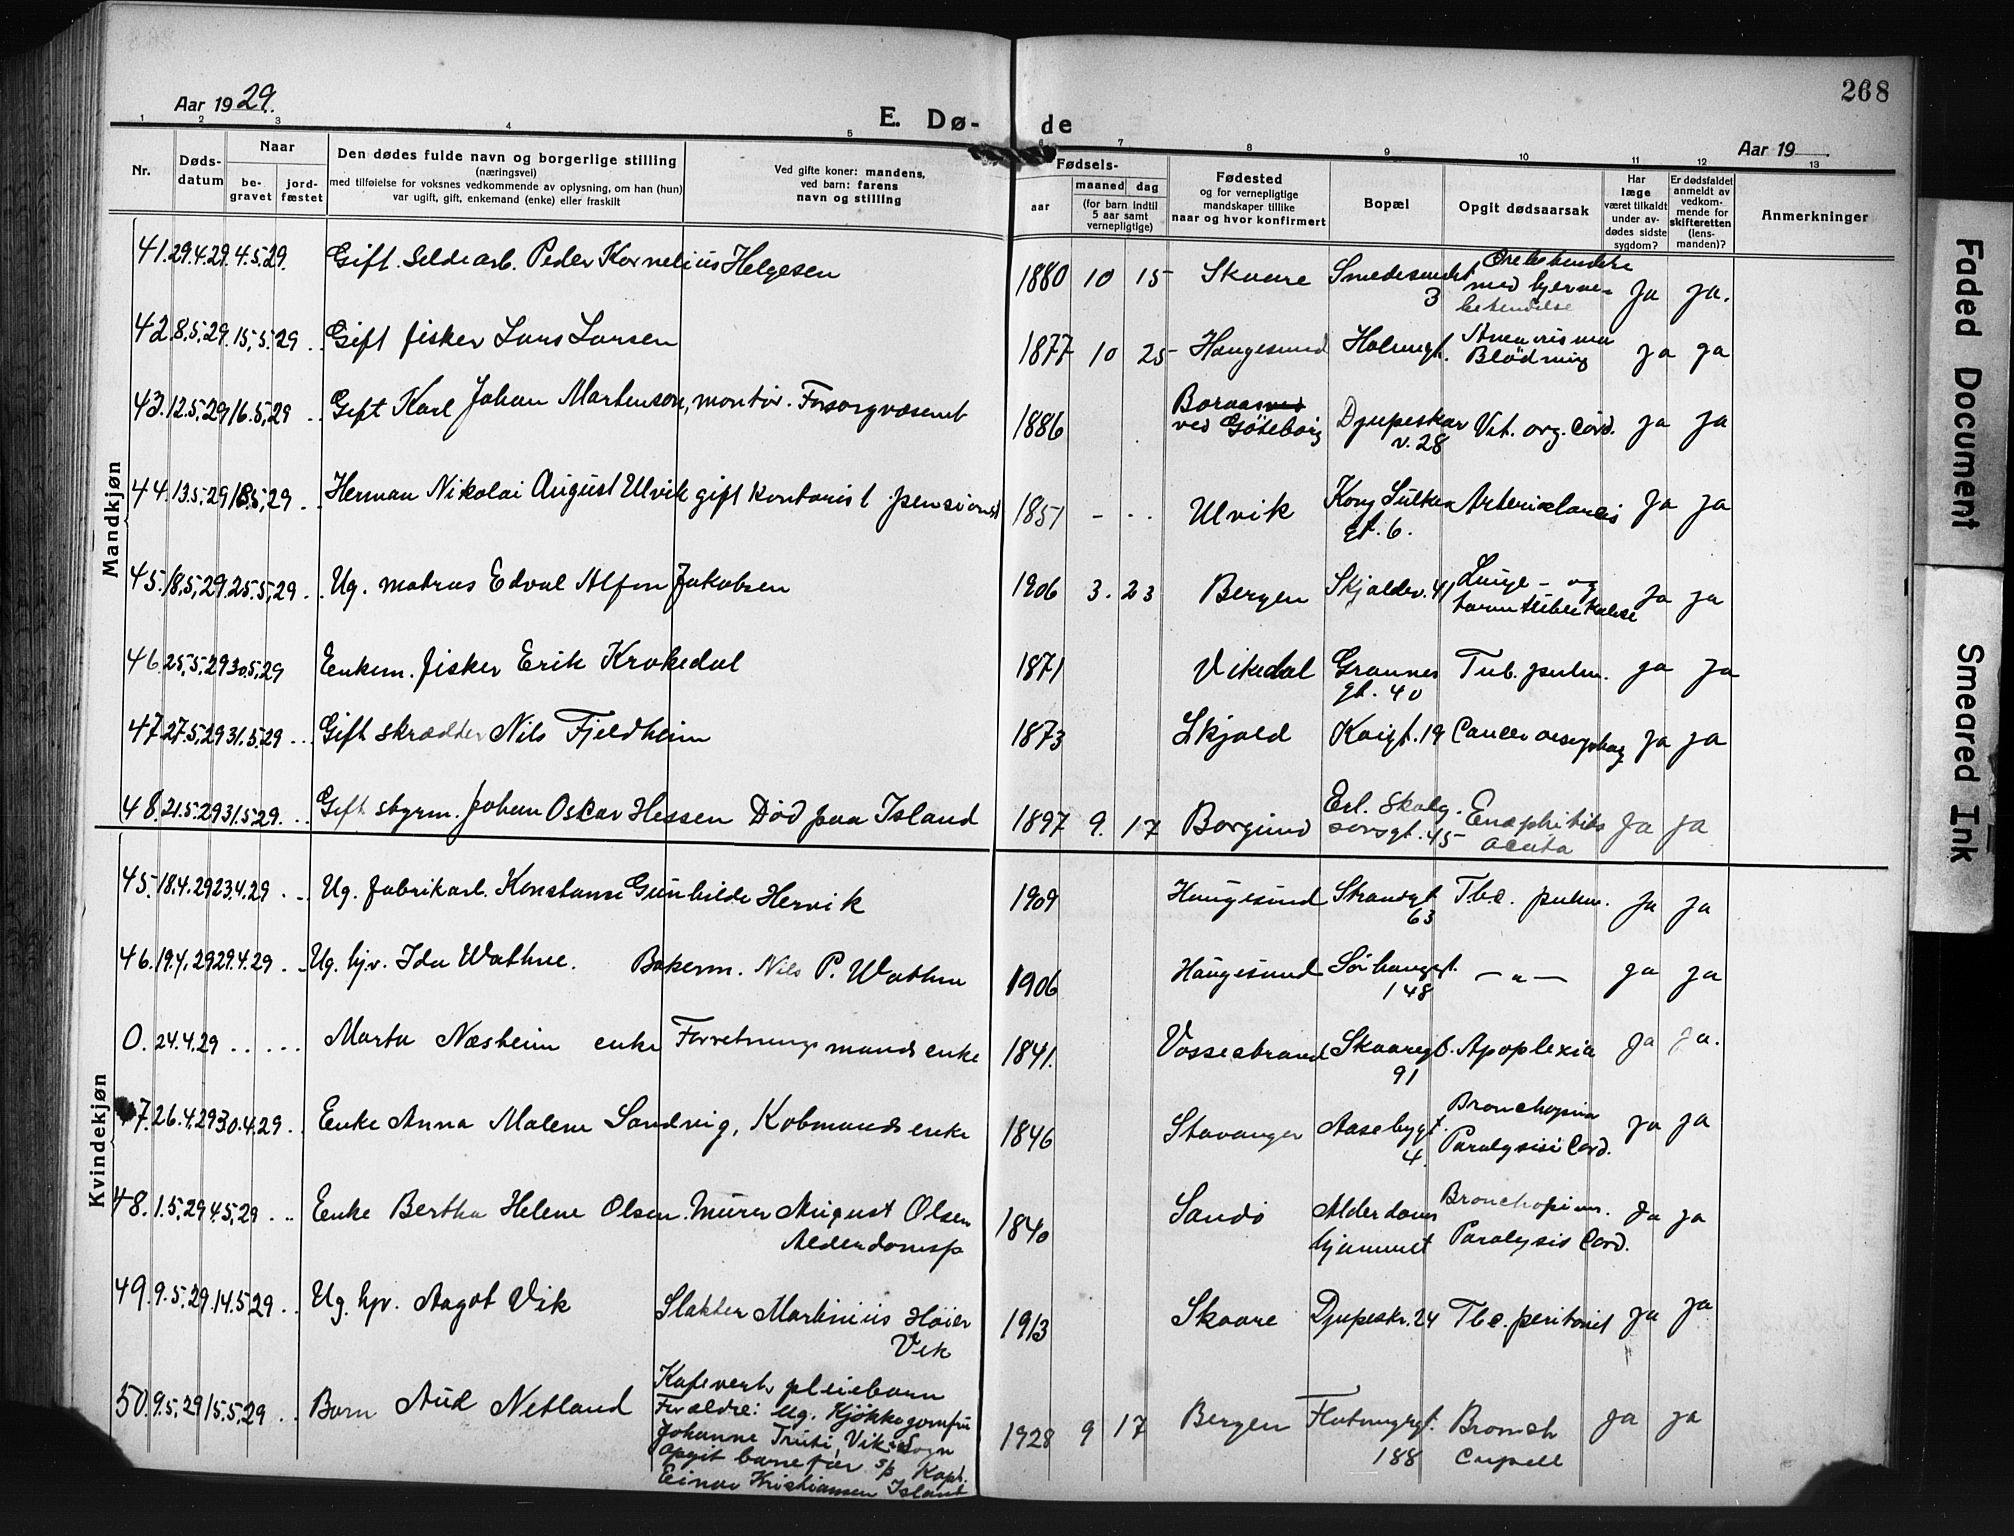 268
Aar 1929.
E. Dø-
de
Aar 19
1 2 3 4 5 6 7 8 9 10 11 12 13
Nr.
Døds-
datum
Naar
be-
gravet
jord-
fæstet
Den dødes fulde navn og borgerlige stilling
(næringsvei)
med tilføielse for voksnes vedkommende av oplysning, om han (hun)
var ugift, gift, enkemand (enke) eller fraskilt
Ved gifte koner: mandens,
ved barn: farens
navn og stilling
Fødsels-
aar
maaned
dag
(for barn indtil
5 aar samt
vernepligtige)
Fødested
og for vernepligtige
mandskaper tillike
naar og hvor konfirmert
Bopæl
Opgit dødsaarsak
Har
læge
været tilkaldt
under av-
dødes sidste
sygdom?
Er dødsfaldet
anmeldt av
vedkom-
mende for
skifteretten
(lens-
manden)?
Anmerkninger
Mandkjøn
41. 29.4.29. 4.5.29. Gift. Sildearb. Peder Kornelius Helgesen 1880 10 15 Skaare Smedesundet 3 med hjerne- betendelse Ja ja.
42. 8.5.29. 15.5.29 .. Gift fisker Lars Larsen 1877 10 25 Haugesund Blødning ja ja
43. 12.5.29 16.5.29 .. Gift Karl Johan Martenson, montør. Forsorgvæsenet 1886 Boraas ved ved Göteborg Djupeskar v. 28 Vit. org. Cord. ja ja
44. 13.5.29 18.5.29 .. Herman Nikolai August Ulvik gift kontorist pensionist 1851 - .. Ulvik Kong Sulkes gt. 6. Ja Ja
45. 18.5.29. 25.5.29 .. Ug. matros Edval Alfon Jakobsen 1906 3. 23 Bergen Skjoldev. 41 Lunge- og tarmtuberkulose Ja ja
46. 25.5.29 30.5.29 Enkem. fisker Erik Krakedal 1871 Vikedal Grannes gt. 40 Tub. pulm. ja Ja
47. 27.5.29 31.5.29 ... Gift skrædder Nils Fjeldheim 1873 Skjold Kaigt. 19 Cancer oesophag ja ja
48. 21.5.29 31.5.29. .. Gift styrm. Johan Oskar Hessen Død paa Island 1897 9. 17 Borgund Erl. Skalg. sonsgt. 45 acuta Ja ja
Kvindekjøn
45. 18.4.29 23.4.29 .. Ug. fabrikarb. Konstanse Gunhilde Hervik 1909 Haugesund Strandgt 63 Tbc. pulm. Ja ja
46. 19.4.29 29.4.29 .. Ug. hjv. Ida Wathne. Bakerm. Nils P. Wathne 1906 Haugesund Sørhauggt. 148 — " — ja ja
0. 24.4.29 ..... Marta Næsheim enke Forretningsmands enke 1841. Vossestrand Skaaregt. 91 Apoplexia Ja Ja.
47. 26.4.29 30.4.29 .. Enke Anna Malene Sandvig, Kobmands enke 1846 Stavanger Aasebygt. 4. Bronchopnm Paralysis Cord. Ja ja
48. 1.5.29 4.5.29 .. Enke Bertha Helene Olsen. Murer August Olsen Alderdomsp 1840 Sandö Alderdoms hjemmet Bronchopnm. Paralysis Cord. Ja ja
49. 9.5.29. 14.5.29 .. Ug. hjv. Aagot Vik Slakter Martinius Höier Vik 1913 Skaare Djupeskr. 24 Tbc. peritonit ja ja
50. 9.5.29 15.5.29 .. Barn Aud Netland Kafevert pleiebarn
Forældre: Ug. Kjøkkejomfru
Johanne Vik Sogn
Opgit barnefar s/p Kapt.
Einar Kristiansen Island 1928 9 17 Bergen Flotmyrgt. 188 Bronch ja ja
Faded Document
Smeared Ink